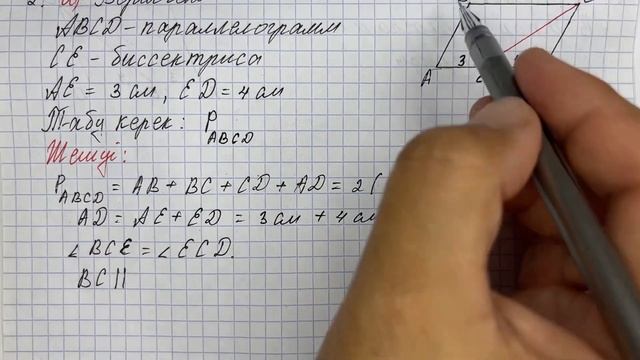 2. а) Берілгені
ABCD - параллелограмм
CE - биссектриса
AE = 3 см, ED = 4 см
Табу керек: P ABCD
Шешуі:
P ABCD = AB + BC + CD + AD = 2(
AD = AE + ED = 3 см + 4 см
∠BCE = ∠ECD.
BC ||
A 3